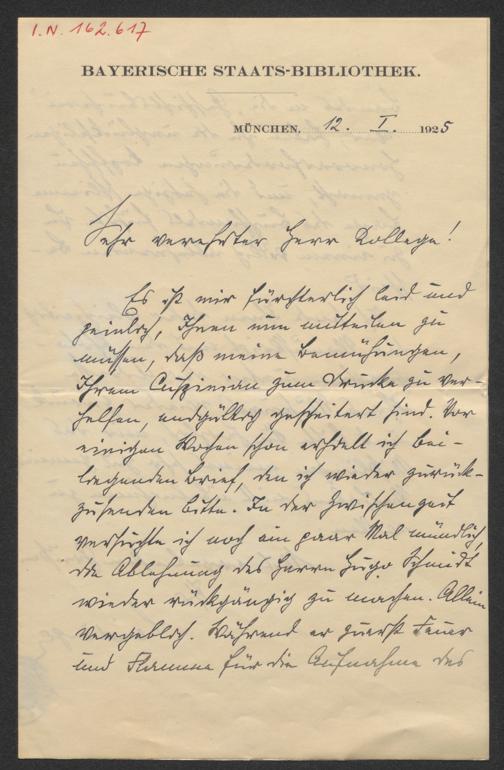 I.N. 162.617
BAYERISCHE STAATS-BIBLIOTHEK.
MÜNCHEN, 12. I. 1925
Sehr verehrter Herr Kollege!
Es ist mir fürchterlich leid und
peinlich, Ihnen nun mitteilen zu
müssen, daß meine Bemühungen,
Ihrem Cuspinian zum Drucke zu ver-
helfen, endgültig gescheitert sind. Vor
einigen Wochen schon erhielt ich bei-
liegenden Brief, den ich wieder zurück-
zusenden bitte. In der Zwischenzeit
versuchte ich noch ein paar Mal mündlich,
die Ablehnung des Herrn Hugo Schmidt
wieder rückgängig zu machen. Allein
vergeblich. Während er zuerst Feuer
und Flamme für die Aufnahme des